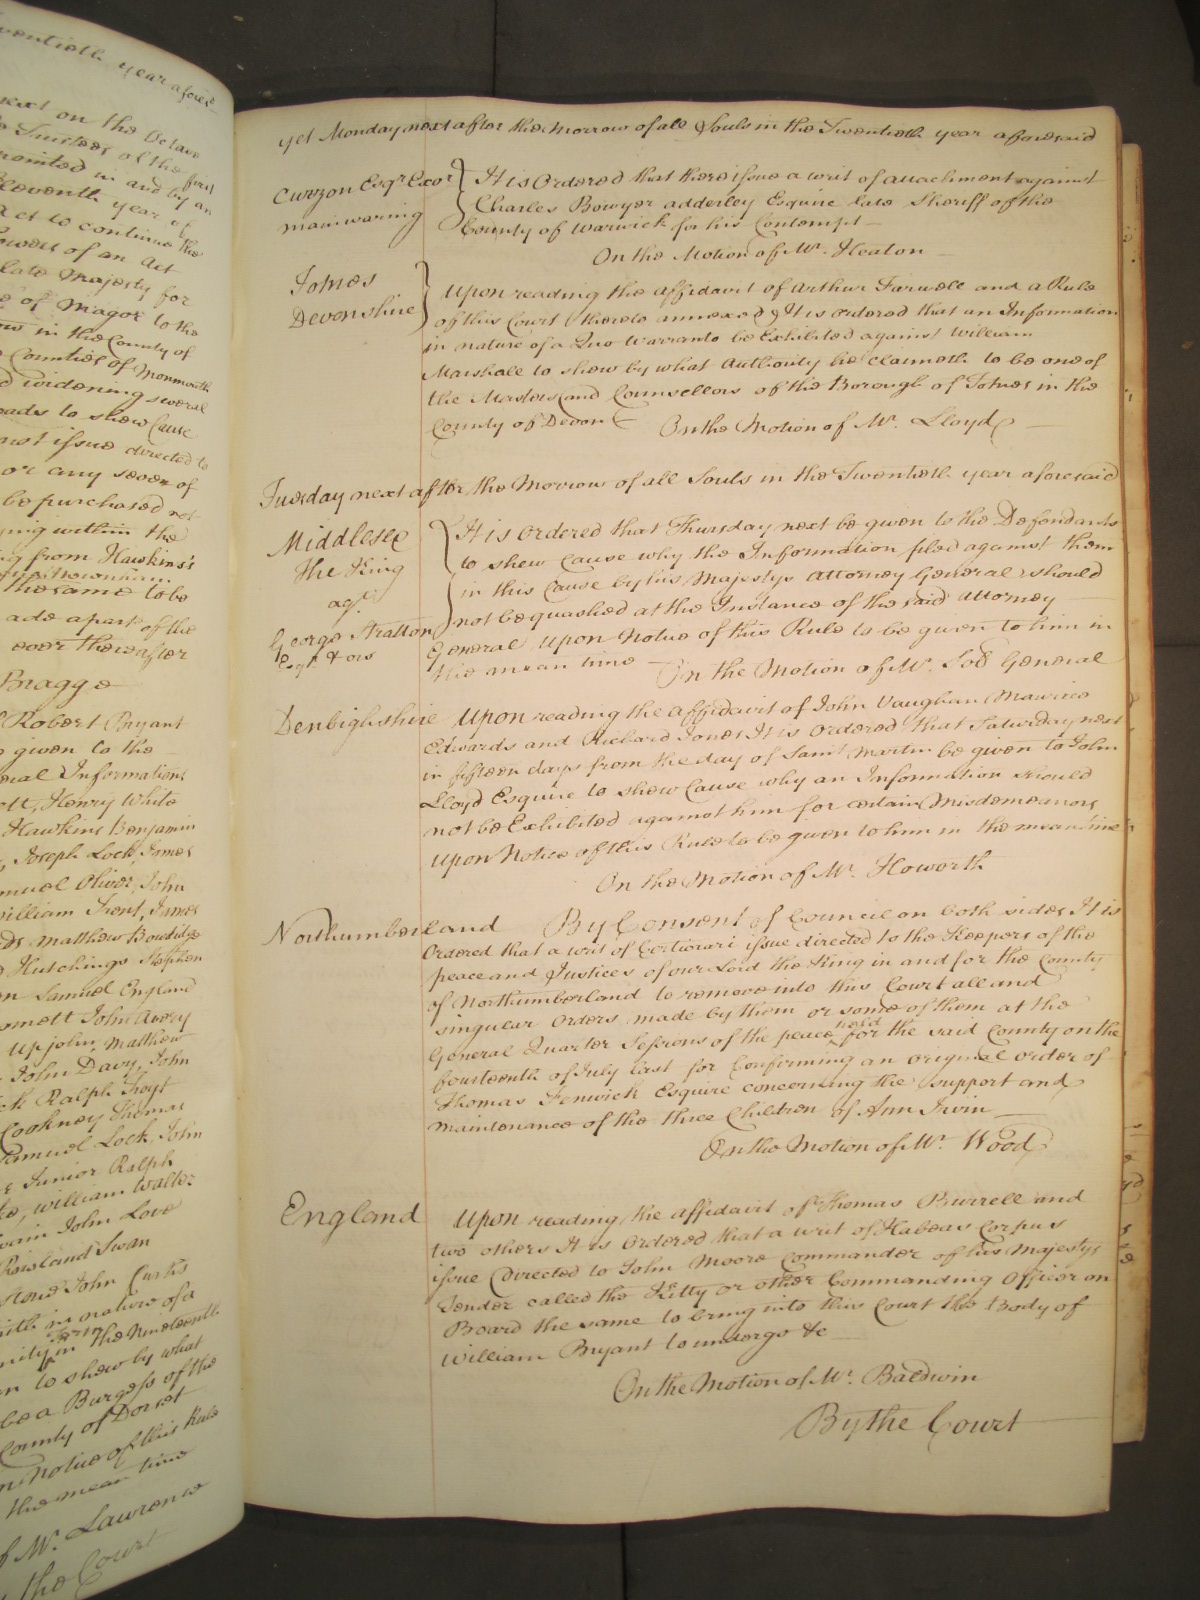 wentieth year afores
next on the Octave
Trustees of the first
pointed in and by an
Eleventh year of
Act to continue the
Powers of an Act
late Majesty for
of Magor to the
ow in the County of
Counties of Monmouth
d widening several
oads to shew Cause
not issue directed to
or any seven of
be purchased not
ying within the
ng from Hawkins's
Newnham
the same to be
ade apart of the
ever thereafter
Bragge
Robert Bryant
given to the
eral Informations
ott, Henry White
Hawkins Benjamin
Joseph Lock, James
muel Oliver, John
William Trent, James
Matthew Bowdidge
Hutchings Stephen
en Samuel England
omett John Avery
Upjohn, Matthew
John Davy, John
ck Ralph Hoyt
Cookney Thomas
Samuel Lock, John
Junior Ralph
William Walter
wain John Love
Rowland Swan
John Curtis
with in nature of a
Term
nity in the Nineteenth
n to shew by what
be a Burgess of the
County of Dorset
n Notice of this Rule
the mean time
of Mr. Lawrence
the Court
yet Monday next after the Morrow of all Souls in the Twentieth year aforesaid
Curzon Esqr. Exor
mainwaring
It is Ordered that there issue a writ of attachment against
Charles Bowyer adderley Esquire late Sheriff of the
County of Warwick for his Contempt
On the Motion of Mr. Heaton
Totnes
Devonshire
Upon reading the affidavit of Arthur Farwell and a Rule
of this Court thereto annexed It is ordered that an Information
in nature of a Quo Warranto be Exhibited against William
Marshall to shew by what Authority he claimeth to be one of
the Masters and Counsellors of the Borough of Totnes in the
County of Devon
On the Motion of Mr. Lloyd
Tuesday next after the Morrow of all Souls in the Twentieth year aforesaid
Middlesex
The King
agt.
George Stratton
Esqr. & ors
It is ordered that Thursday next be given to the Defendants
to shew Cause why the Information filed against them
in this Cause by his Majestys Attorney General should
not be quashed at the Instance of the said Attorney
General upon Notice of this Rule to be given to him in
the mean time
On the Motion of Mr. Sol General
Denbighshire
Upon reading the affidavit of John Vaughan Maurice
Edwards and Richard Jones It is Ordered that Saturday next
in fifteen days from the day of Saint Martin be given to John
Lloyd Esquire to shew Cause why an Information should
not be Exhibited against him for certain Misdemeanors
upon Notice of this Rule to be given to him in the mean time
On the Motion of Mr. Howorth
Northumberland
By Consent of Council on both sides It is
Ordered that a writ of Certiorari issue directed to the Keepers of the
peace and Justices of our Lord the King in and for the County
of Northumberland to remove into this Court all and
singular Orders made by them or some of them at the
held
General Quarter Sessions of the peace for the said County on the
fourteenth of July last for Confirming an original order of
Thomas Fenwick Esquire concerning the support and
maintenance of the three Children of Ann Irvin
On the Motion of Mr. Wood
England
Upon reading the affidavit of Thomas Burrell and
two others It is Ordered that a writ of Habeas Corpus
issue Directed to John Moore Commander of his Majestys
Tender called the Kitty or other Commanding Officer on
Board the same to bring into this Court the Body of
William Bryant to undergo &c
On the Motion of Mr. Baldwin
By the Court